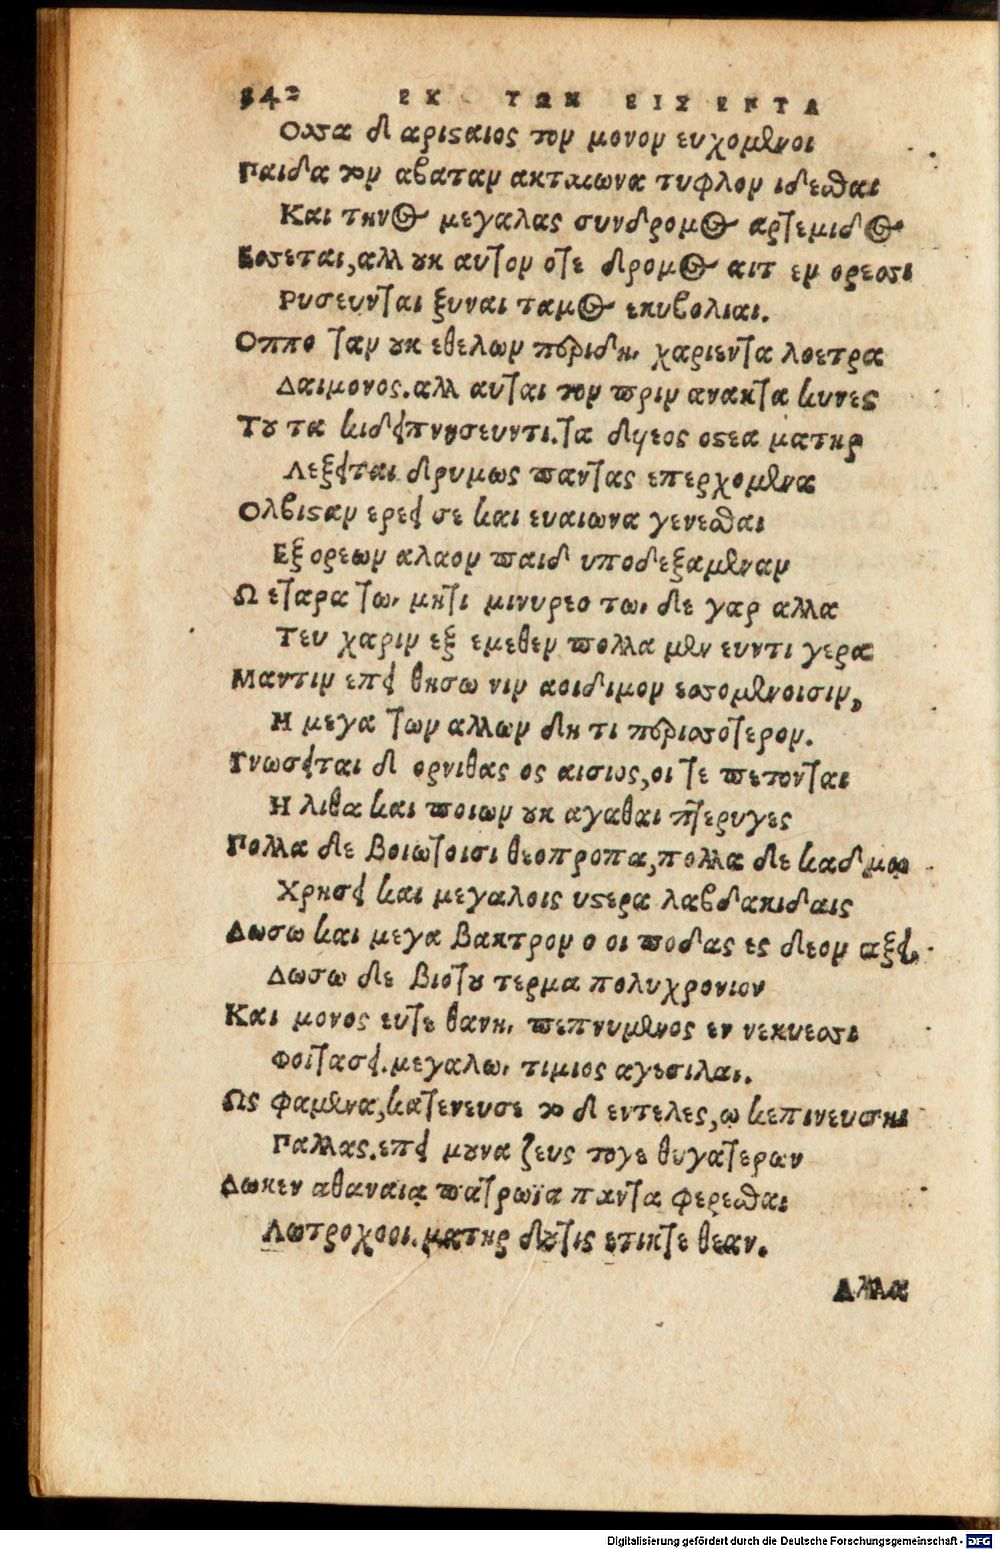 342 ΕΚ ΤΩΝ ΕΙΣ ΕΝΤΑ
Οσσα δ αρισαιος τον μονον ευχομενοι
Παιδα τον αβαταν ακταιωνα τυφλον ιδεσθαι
Και τηνος μεγαλας συνδρομος αρτεμιδος
Εσσεται, αλλ ουκ αυτον οτε δρομος αιτ εν ορεσσι
Ρυσευνται ξυναι ταμος εκυβολιαι.
Οππο ταν ουκ εθελων περ ιδη, χαριεντα λοετρα
Δαιμονος. αλλ αυται τον πριν ανακτα κυνες
Του τα κιδειπνησευντι. τα δ υεος οστεα ματηρ
Λεξειται δρυμως παντας επερχομενα
Ολβισαν ερει σε και ευαιωνα γενεσθαι
Εξ ορεων αλαον παιδ υποδεξαμεναν
Ω εταρα τω, μητι μινυρεο τω, δε γαρ αλλα
Τευ χαριν εξ εμεθεν πολλα μεν ευντι γερα
Μαντιν επει θησω νιν αοιδιμον εσσομενοισιν,
Η μεγα των αλλων δη τι περισσοτερον.
Γνωσειται δ ορνιθας ος αισιως, οι τε πετονται
Η λιθα και ποιων ουκ αγαθαι πτερυγες
Πολλα δε Βοιωτοισι θεοπροπα, πολλα δε καδμω
Χρησει και μεγαλοις υστερα λαβδακιδαις
Δωσω και μεγα Βακτρον ο οι ποδας ες δεον αξει,
Δωσω δε Βιοτου τερμα πολυχρονιον
Και μονος ευτε θανη, πεπνυμενος εν νεκυεσσι
Φοιτασει. μεγαλω, τιμιος αγεσιλαι.
Ως φαμενα, κατενευσε το δ εντελες, ω κεπινευσηι
Παλλας. επει μουνα ζευς τογε θυγατερων
Δωκεν αθαναια πατρωϊα παντα φερεσθαι
Λωτροχοοι. ματηρ δουτις ετικτε θεαν.
Αλλα
Digitalisierung gefördert durch die Deutsche Forschungsgemeinschaft - DFG